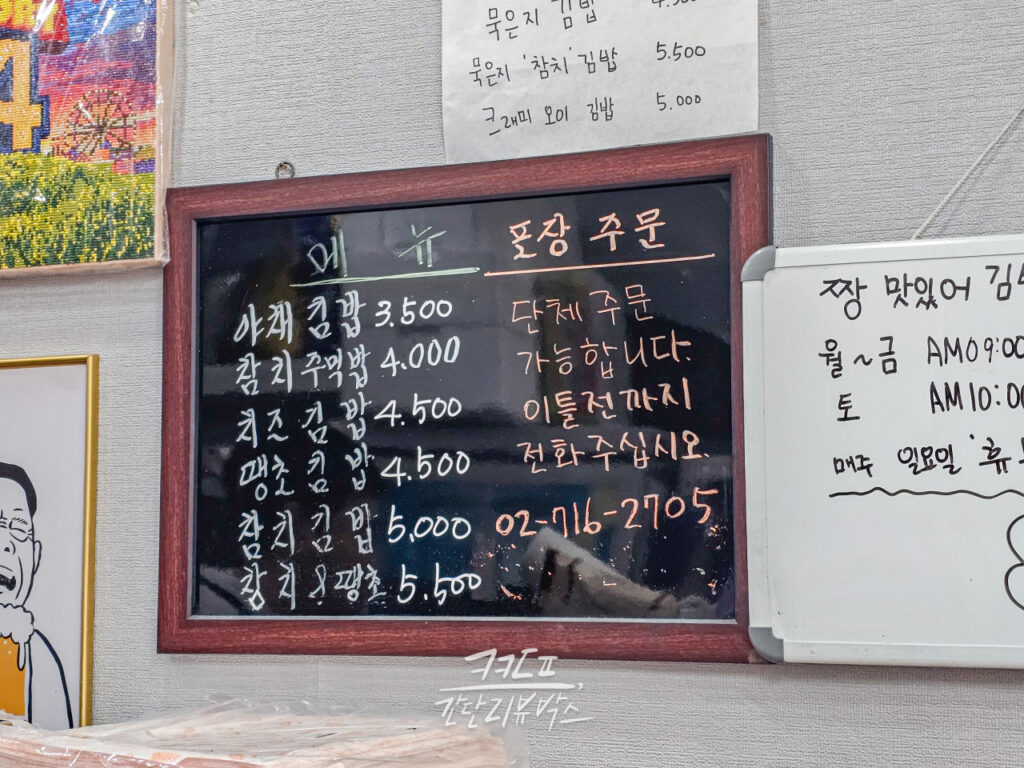 묵은지 김밥
묵은지 '참치' 김밥 5.500
크래미 오이 김밥 5.000
메 뉴
야채 김밥 3.500
참치 주먹밥 4.000
치즈 김밥 4.500
땡초 김밥 4.500
참치 김밥 5,000
참치 & 땡초 5.500
포장 주문
단체 주문
가능합니다.
이틀전까지
전화주십시오.
02-716-2705
짱 맛있어
월~금 AM09:00
토 AM10:00
매주 일요일
간단리뷰박스
4